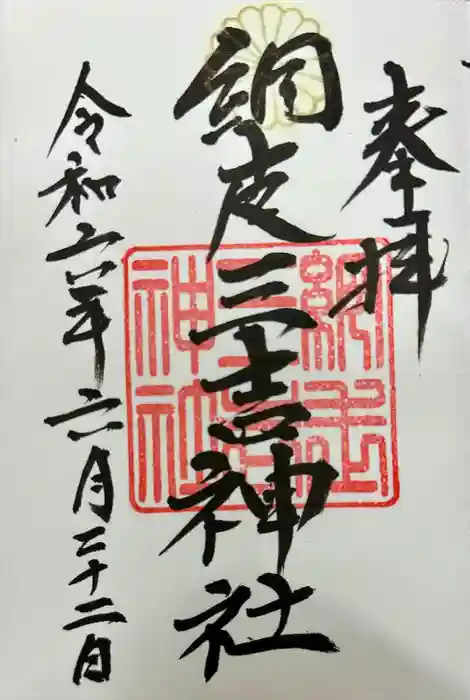 奉拝
網走三吉神社
令和六年六月二十二日
網走三吉神社